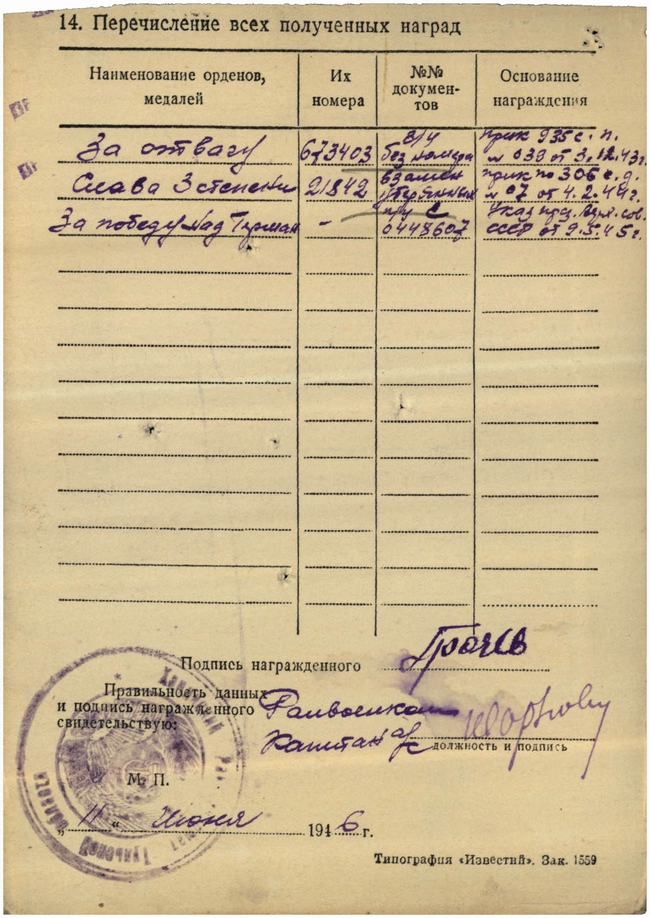 14. Перечисление всех полученных наград
Наименование орденов, медалей
Их номера
№№ документов
Основание награждения
За отвагу 673403 в/у без номера прик 935 с. п. № 039 от 3.12.43г.
Слава 3 степени 21842 взамен утерянных прик по 306 с. д. № 07 от 4.2.44г.
За победу над Герман - 0448607 Указ През. Верх. Сов. СССР от 9.5.45г.
Подпись награжденного Грачев
Правильность данных
и подпись награжденного Райвоенком
свидетельствую: Капитан а/с
должность и подпись
М. П.
„ 11 “ Июня 1946 г.
Тульской области
Типография «Известий». Зак. 1559